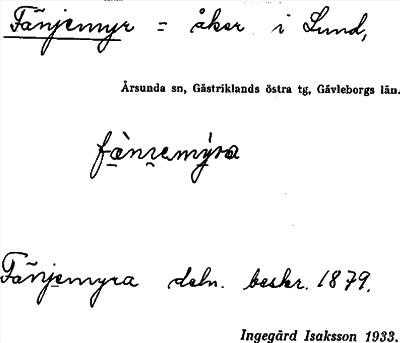 Fänjemyr = åker i Lund,
Årsunda sn, Gästriklands östra tg, Gävleborgs län.
fànɪemýra
Fänjemyra deln. beskr. 1879.
Ingegärd Isaksson 1933.